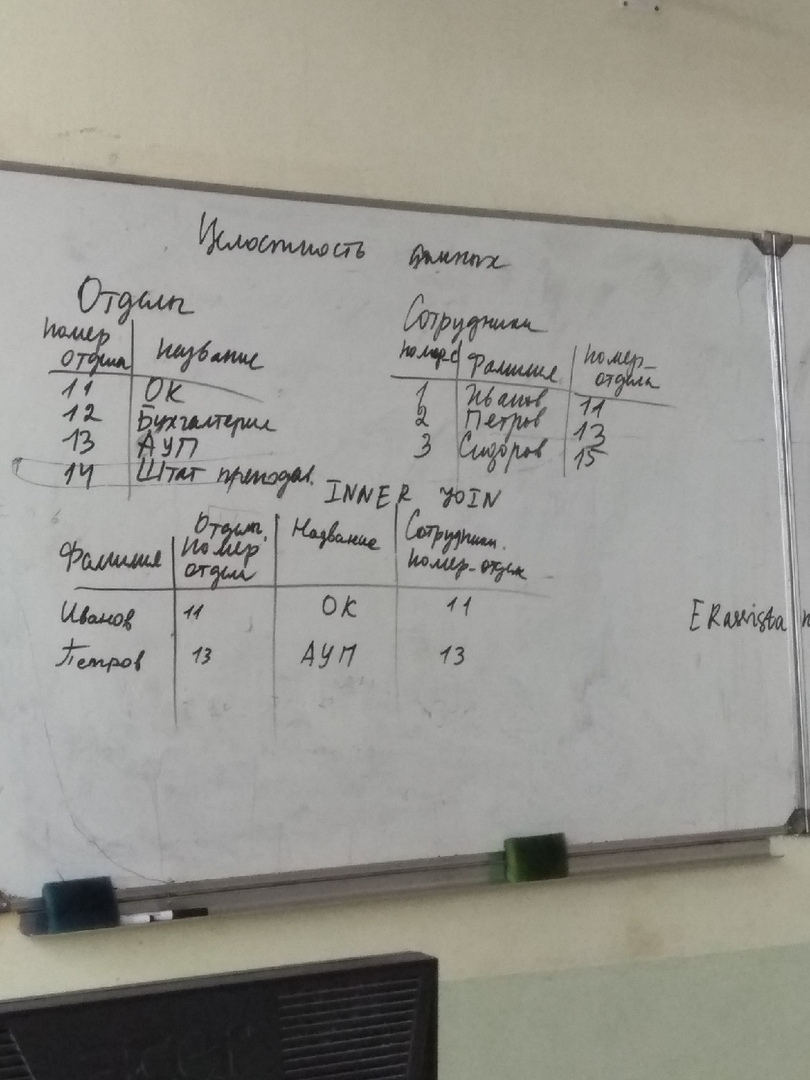 Целостность данных
Отделы
номер отдела | Название
11 | ОК
12 | Бухгалтерия
13 | АУП
14 | Штат преподав.
Сотрудники
номер | Фамилия | номер_отдела
1 | Иванов | 11
2 | Петров | 13
3 | Сидоров | 15
INNER JOIN
Фамилия | Отделы. номер отдел | Название | Сотрудники. номер_отдел
Иванов | 11 | ОК | 11
Петров | 13 | АУП | 13